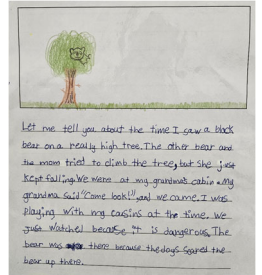 Let me tell you about the time I saw a black
bear on a really high tree. The other bear and
the mom tried to climb the tree, but She just
kept falling. We were at my grandma's cabin. My
grandma said "Come look!" and we came. I was
playing with my casins at the time. We
just watched because it is dangerous. The
bear was there because the dogs scared the
bear up there.